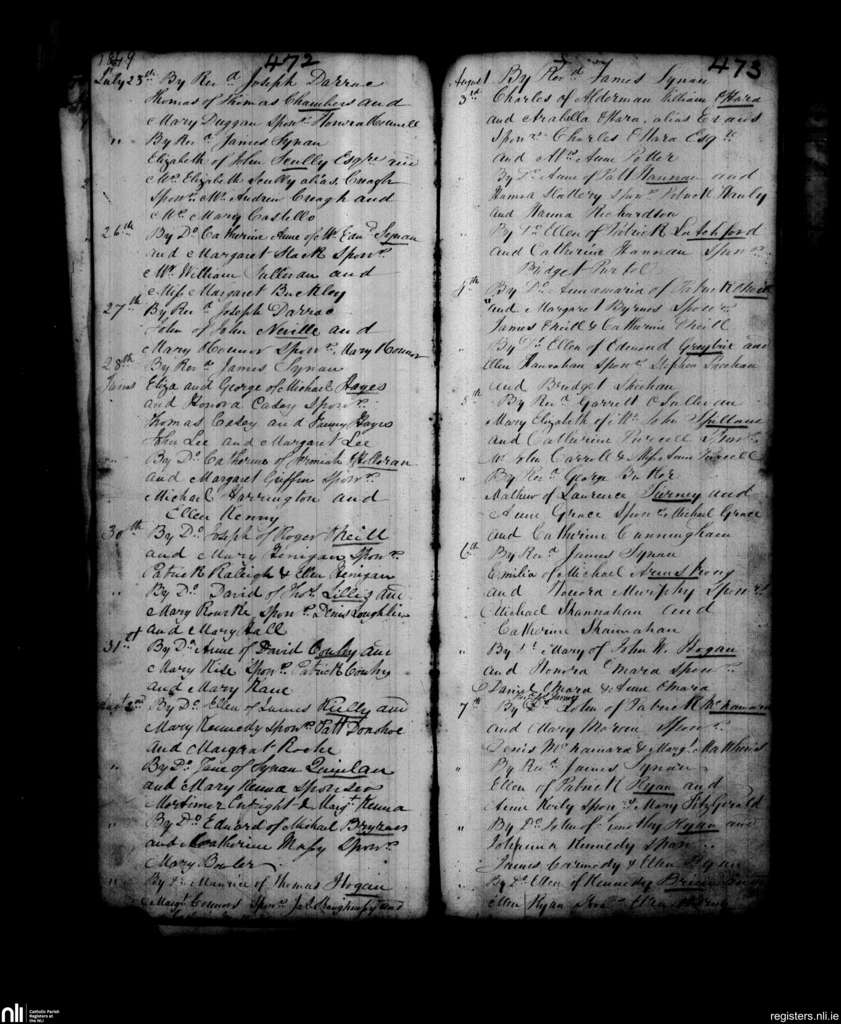 1849
472
July 25th By Revd Joseph Darrac
Thomas of Thomas Chambers and
Mary Duggan Sponrs Honora
" By Revd James Synan
Elizabeth of John Scully Esqre and
Mrs Elizabeth Scully alias Creagh
Sponrs Mr Andrew Creagh and
Mrs Mary Costello
26th By Do Catherine Anne of Mr Edmd Synan
and Margaret Slack Sponrs
Mr William Sullivan and
Miss Margaret Buckley
27th By Revd Joseph Darrac
John of John Neville and
Mary OConnor Sponrs Mary OConnor
28th By Revd James Synan
Twins Eliza and George of Michael Hayes
and Honora Casey Sponrs
Thomas Casey and Fanny Hayes
John Lee and Margaret Lee
" By Do Catherine of Jeremiah OHalloran
and Margaret Griffin Sponrs
Michael Harrington and
Ellen Kenny
30th By Do Joseph of Roger ONeill
and Mary Finigan Sponrs
Patrick Raleigh & Ellen Finigan
" By Do David of Thos Lillis and
Mary Rourke Sponrs Denis Loughlin
and Mary Hall
31st By Do Anne of David Conhy and
Mary Kise Sponrs Patrick Conhy
and Mary Kane
Augt 2nd By Do Ellen of James Kielly and
Mary Kennedy Sponrs Patt Donohoe
and Margrat Roche
" By Do Jane of Synan Quinlan
and Mary Kenna Sponsers
Mortimer Enright & Margt Kenna
" By Do Edward of Michael
and Catherine Massy Sponrs
Mary Bowler
" By Do Maurice of Thomas Hogan
Margt Connors Sponrs Jas and
473
August By Revd James Synan
3rd Charles of Alderman William OHara
and Arabella OHara, alias Evans
Sponrs Charles OHara Esqre
and Mrs Anne Potter
" By Do Anne of Patt Hannan and
Hanna Slattery Sponrs Patrick Hanly
and Hanna Richardson
" By Do Ellen of Patrick Latchford
and Catherine Hannan Sponrs
Bridget Purtel
4th By Do Annamaria of Patrick
and Margaret Byrnes Sponrs
James & Catherine
" By Do Ellen of Edmond and
Ellen Hanrahan Sponrs Stephen Sheehan
and Bridget Sheehan
5th By Revd Garrett OSullivan
Mary Elizabeth of Mr John Spillane
and Catherine Purcell Sponrs
Mr John Carroll & Miss Anne Purcell
" By Revd George Butler
Mathew of Laurence Turney and
Anne Grace Sponrs Michael Grace
and Catherine Canningham
6th By Revd James Synan
Emilia of Michael Armstrong
and Honora Murphy Sponrs
Michael Shannahan and
Catherine Shannahan
" By Do Mary of John W. Hogan
and Honora OMara Sponrs
Daniel OMara & Anne OMara
7th By John of Patrick McNamara
and Mary Moran Sponrs
Denis McNamara & Margt Matthews
" By Revd James Synan
Ellen of Patrick Ryan and
Anne Keily Sponrs Mary FitzGerald
" By Do John of Timothy Ryan and
Johanna Kennedy Sponrs
James Carmody & Ellen Ryan
" By Do Ellen of Kennedy
Ellen Ryan Sponrs Ellen
nli
Catholic Parish
Registers at
the NLI
registers.nli.ie